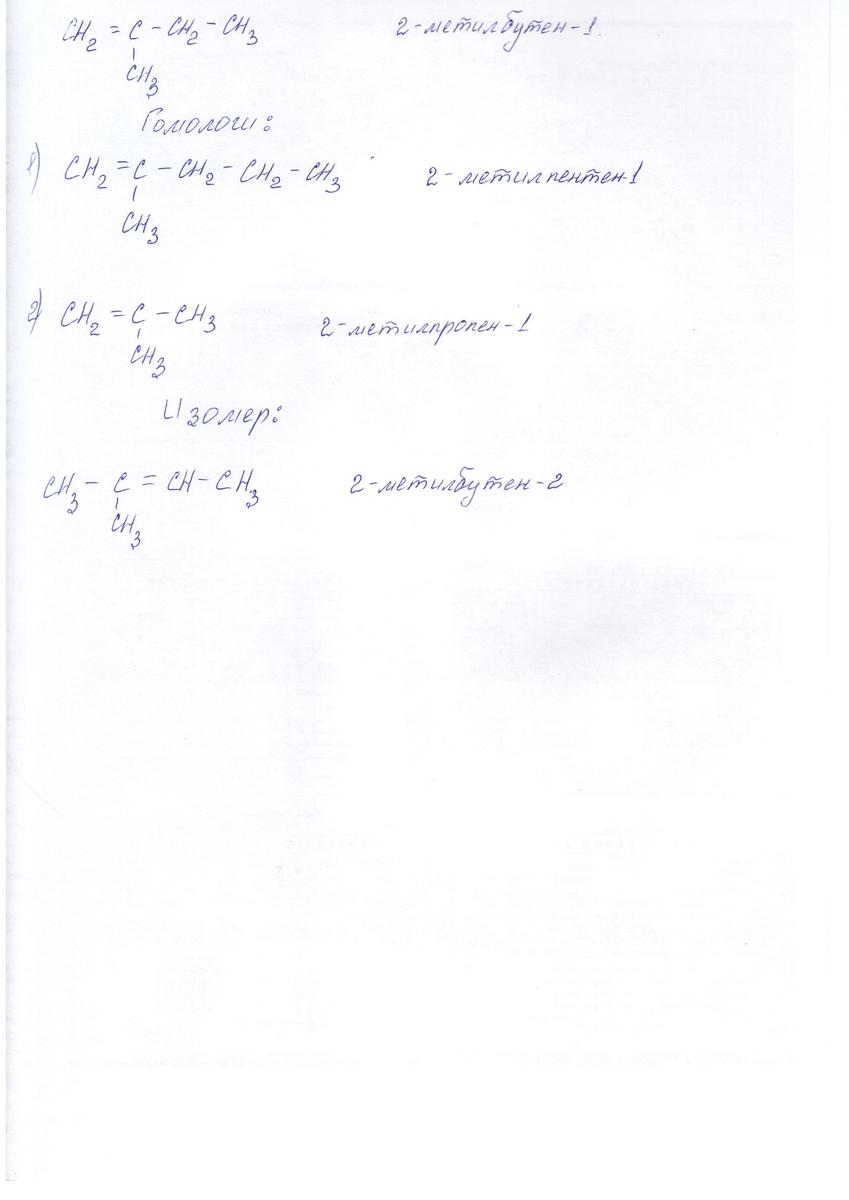 CH₂ = C – CH₂ – CH₃ 2-метилбутен-1.
CH₃
Гомологи:
1) CH₂ = C – CH₂ – CH₂ – CH₃ 2-метилпентен-1
CH₃
2) CH₂ = C – CH₃ 2-метилпропен-1
CH₃
Изомер:
CH₃ – C = CH – CH₃ 2-метилбутен-2
CH₃